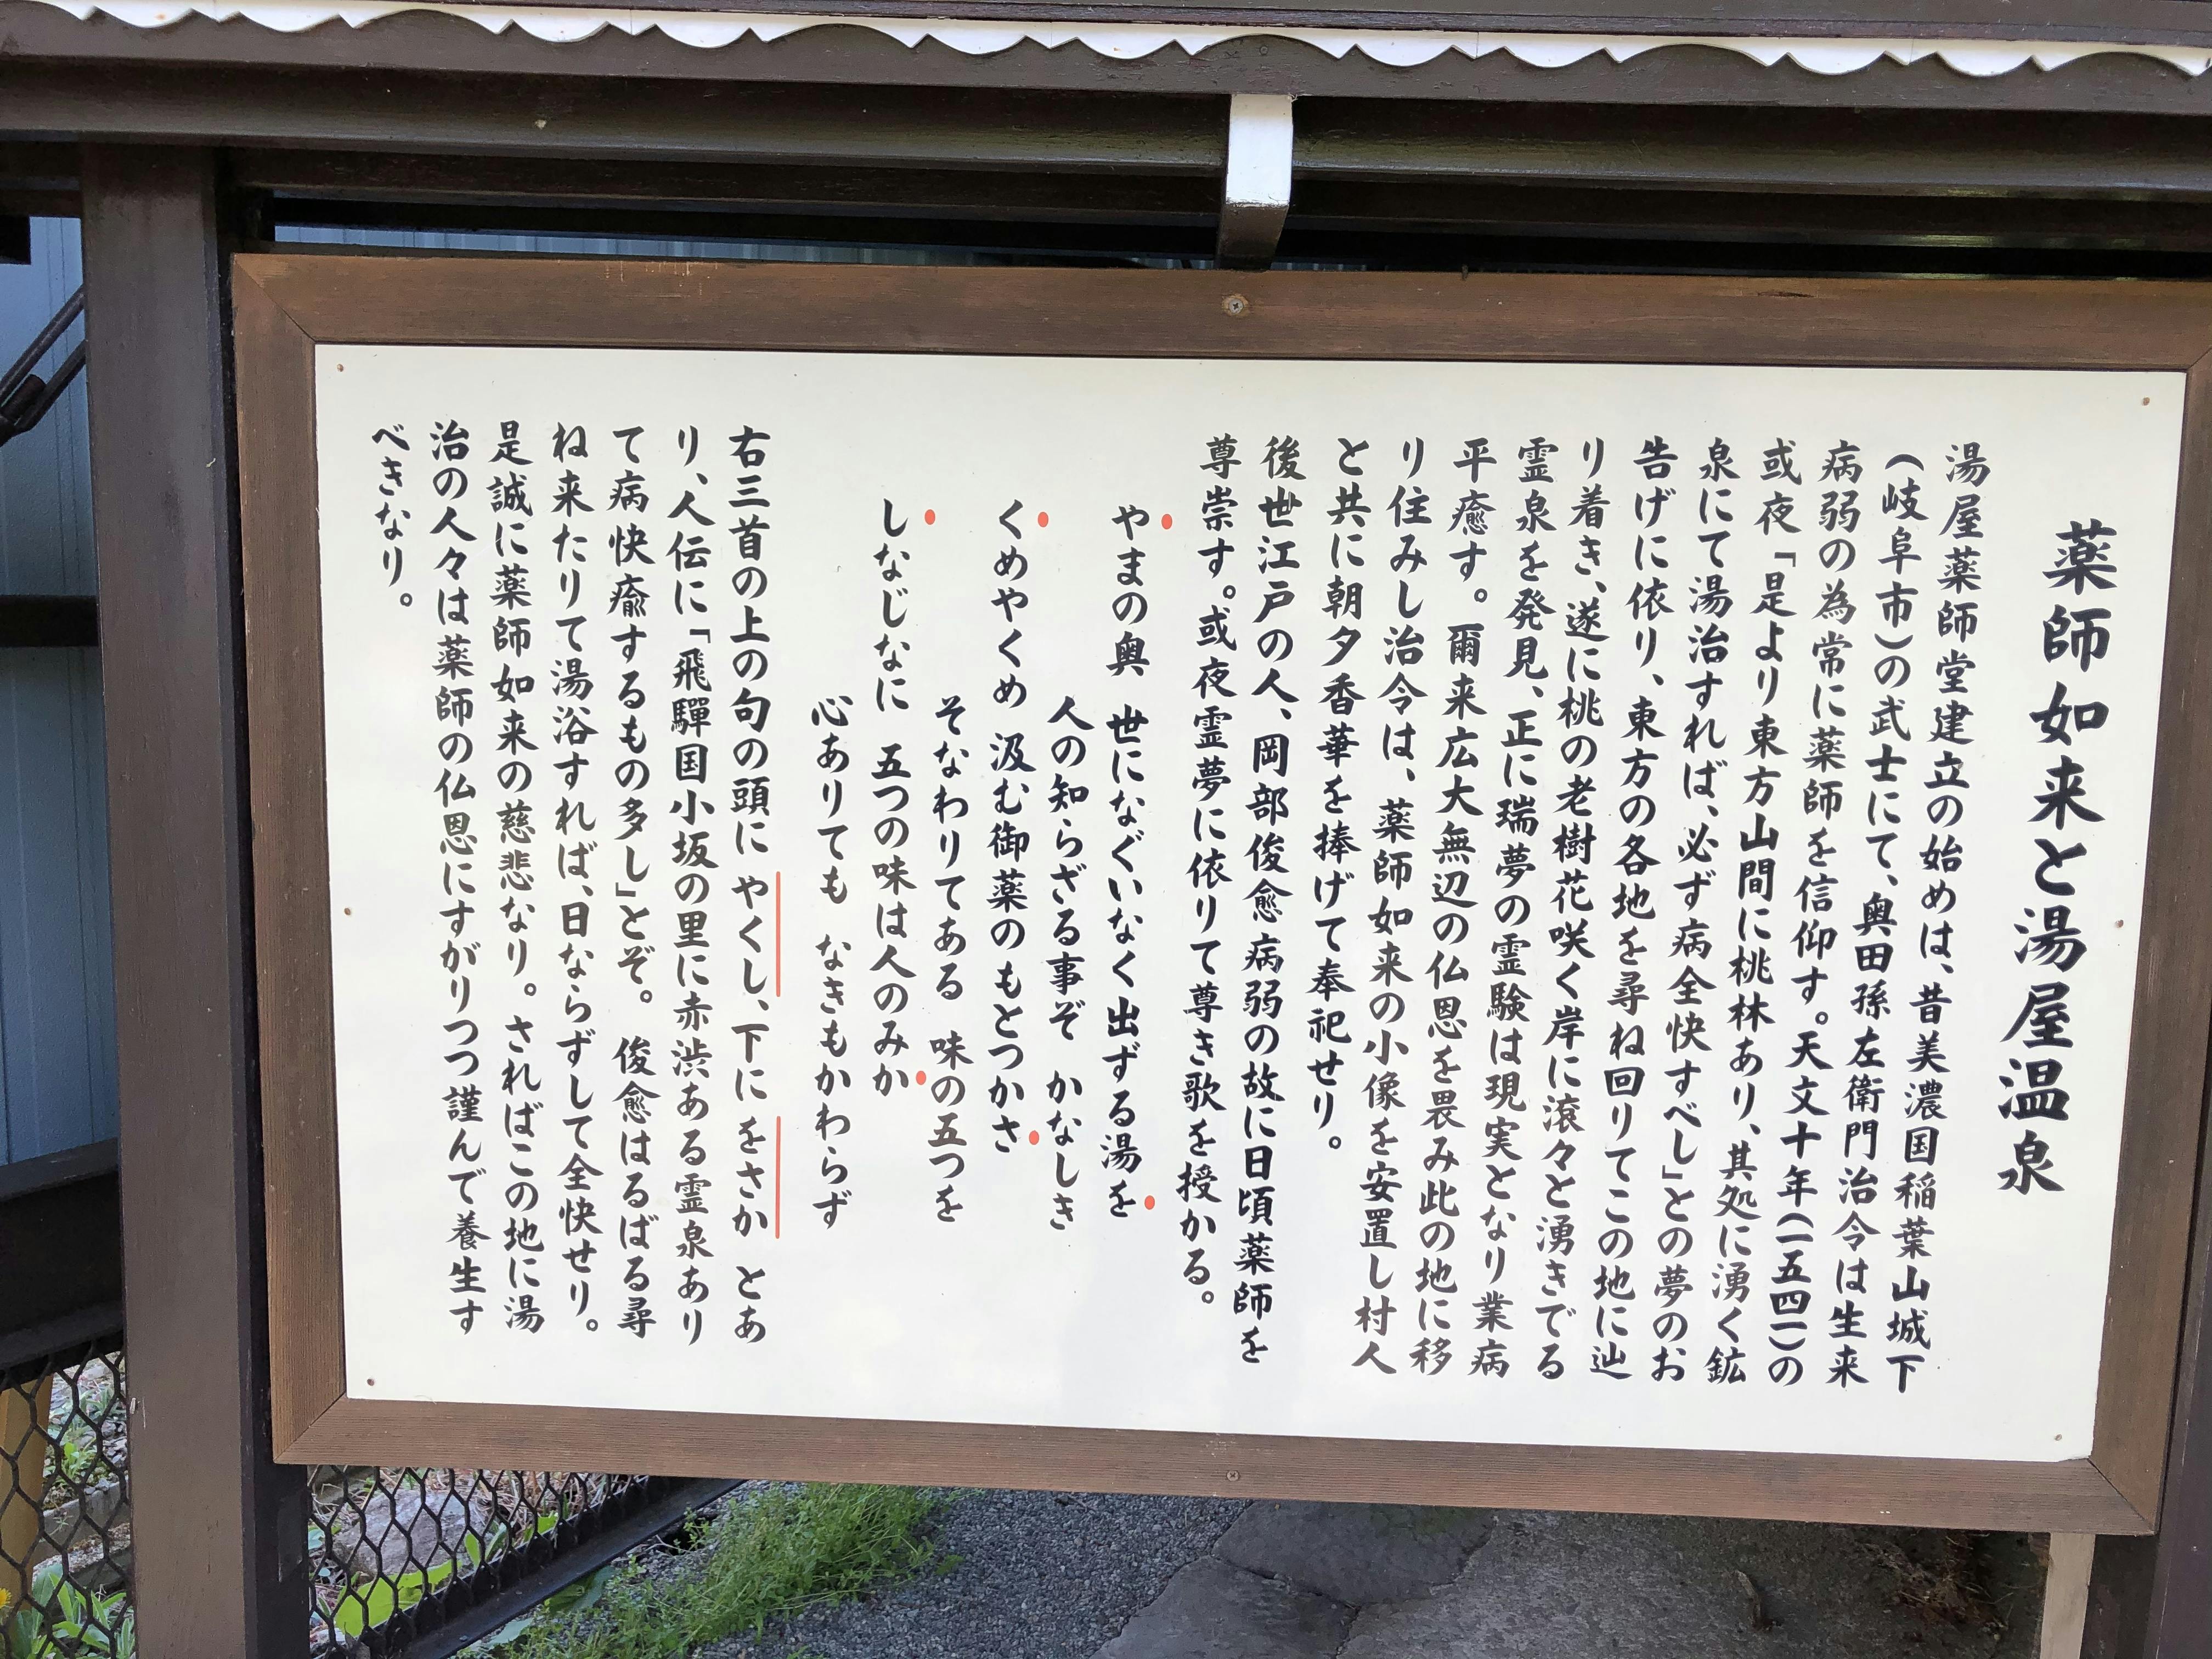 薬師如来と湯屋温泉
湯屋薬師堂建立の始めは、昔美濃国稲葉山城下
(岐阜市)の武士にて、奥田孫左衛門治令は生来
病弱の為常に薬師を信仰す。天文十年(一五四一)の
或夜「是より東方山間に桃林あり、其処に湧く鉱
泉にて湯治すれば、必ず病全快すべし」との夢のお
告げに依り、東方の各地を尋ね回りてこの地に辿
り着き、遂に桃の老樹花咲く岸に滾々と湧きでる
霊泉を発見、正に瑞夢の霊験は現実となり業病
平癒す。爾来広大無辺の仏恩を畏み此の地に移
り住みし治令は、薬師如来の小像を安置し村人
と共に朝夕香華を捧げて奉祀せり。
後世江戸の人、岡部俊愈病弱の故に日頃薬師を
尊崇す。或夜霊夢に依りて尊き歌を授かる。
やまの奥 世になぐいなく出ずる湯を
人の知らざる事ぞ かなしき
くめやくめ 汲む御薬の もとつかさ
そなわりてある 味の五つを
しなじなに 五つの味は人のみか
心ありても なきもかわらず
右三首の上の句の頭に やくし、下に をさか とあ
り、人伝に「飛驒国小坂の里に赤渋ある霊泉あり
て病快癒するもの多し」とぞ。 俊愈はるばる尋
ね来たりて湯浴すれば、日ならずして全快せり。
是誠に薬師如来の慈悲なり。さればこの地に湯
治の人々は薬師の仏恩にすがりつつ謹んで養生す
べきなり。